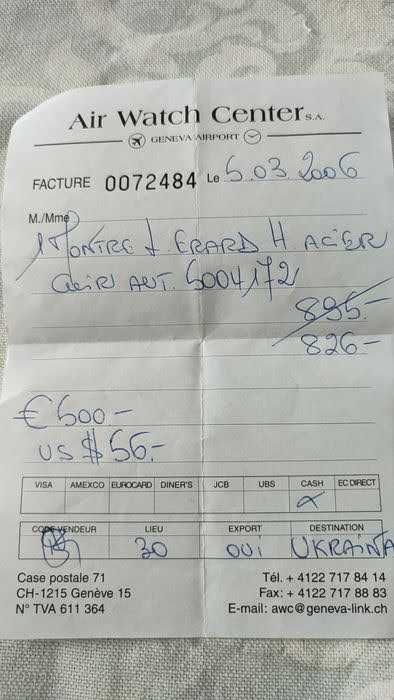 Air Watch Center S.A.
GENEVA AIRPORT
FACTURE 0072484 Le 5.03.2006
M./Mme
1 MONTRE J. ERARD H. ACIER
CUIR AUT. 5004172
895.-
826-
€ 500-
US $ 56.-
VISA AMEXCO EUROCARD DINER'S JCB UBS CASH EC DIRECT
x
CODE VENDEUR LIEU EXPORT DESTINATION
30 OUI UKRAINA
Case postale 71 Tél. + 4122 717 84 14
CH-1215 Genève 15 Fax: + 4122 717 88 83
N° TVA 611 364 E-mail: awc@geneva-link.ch